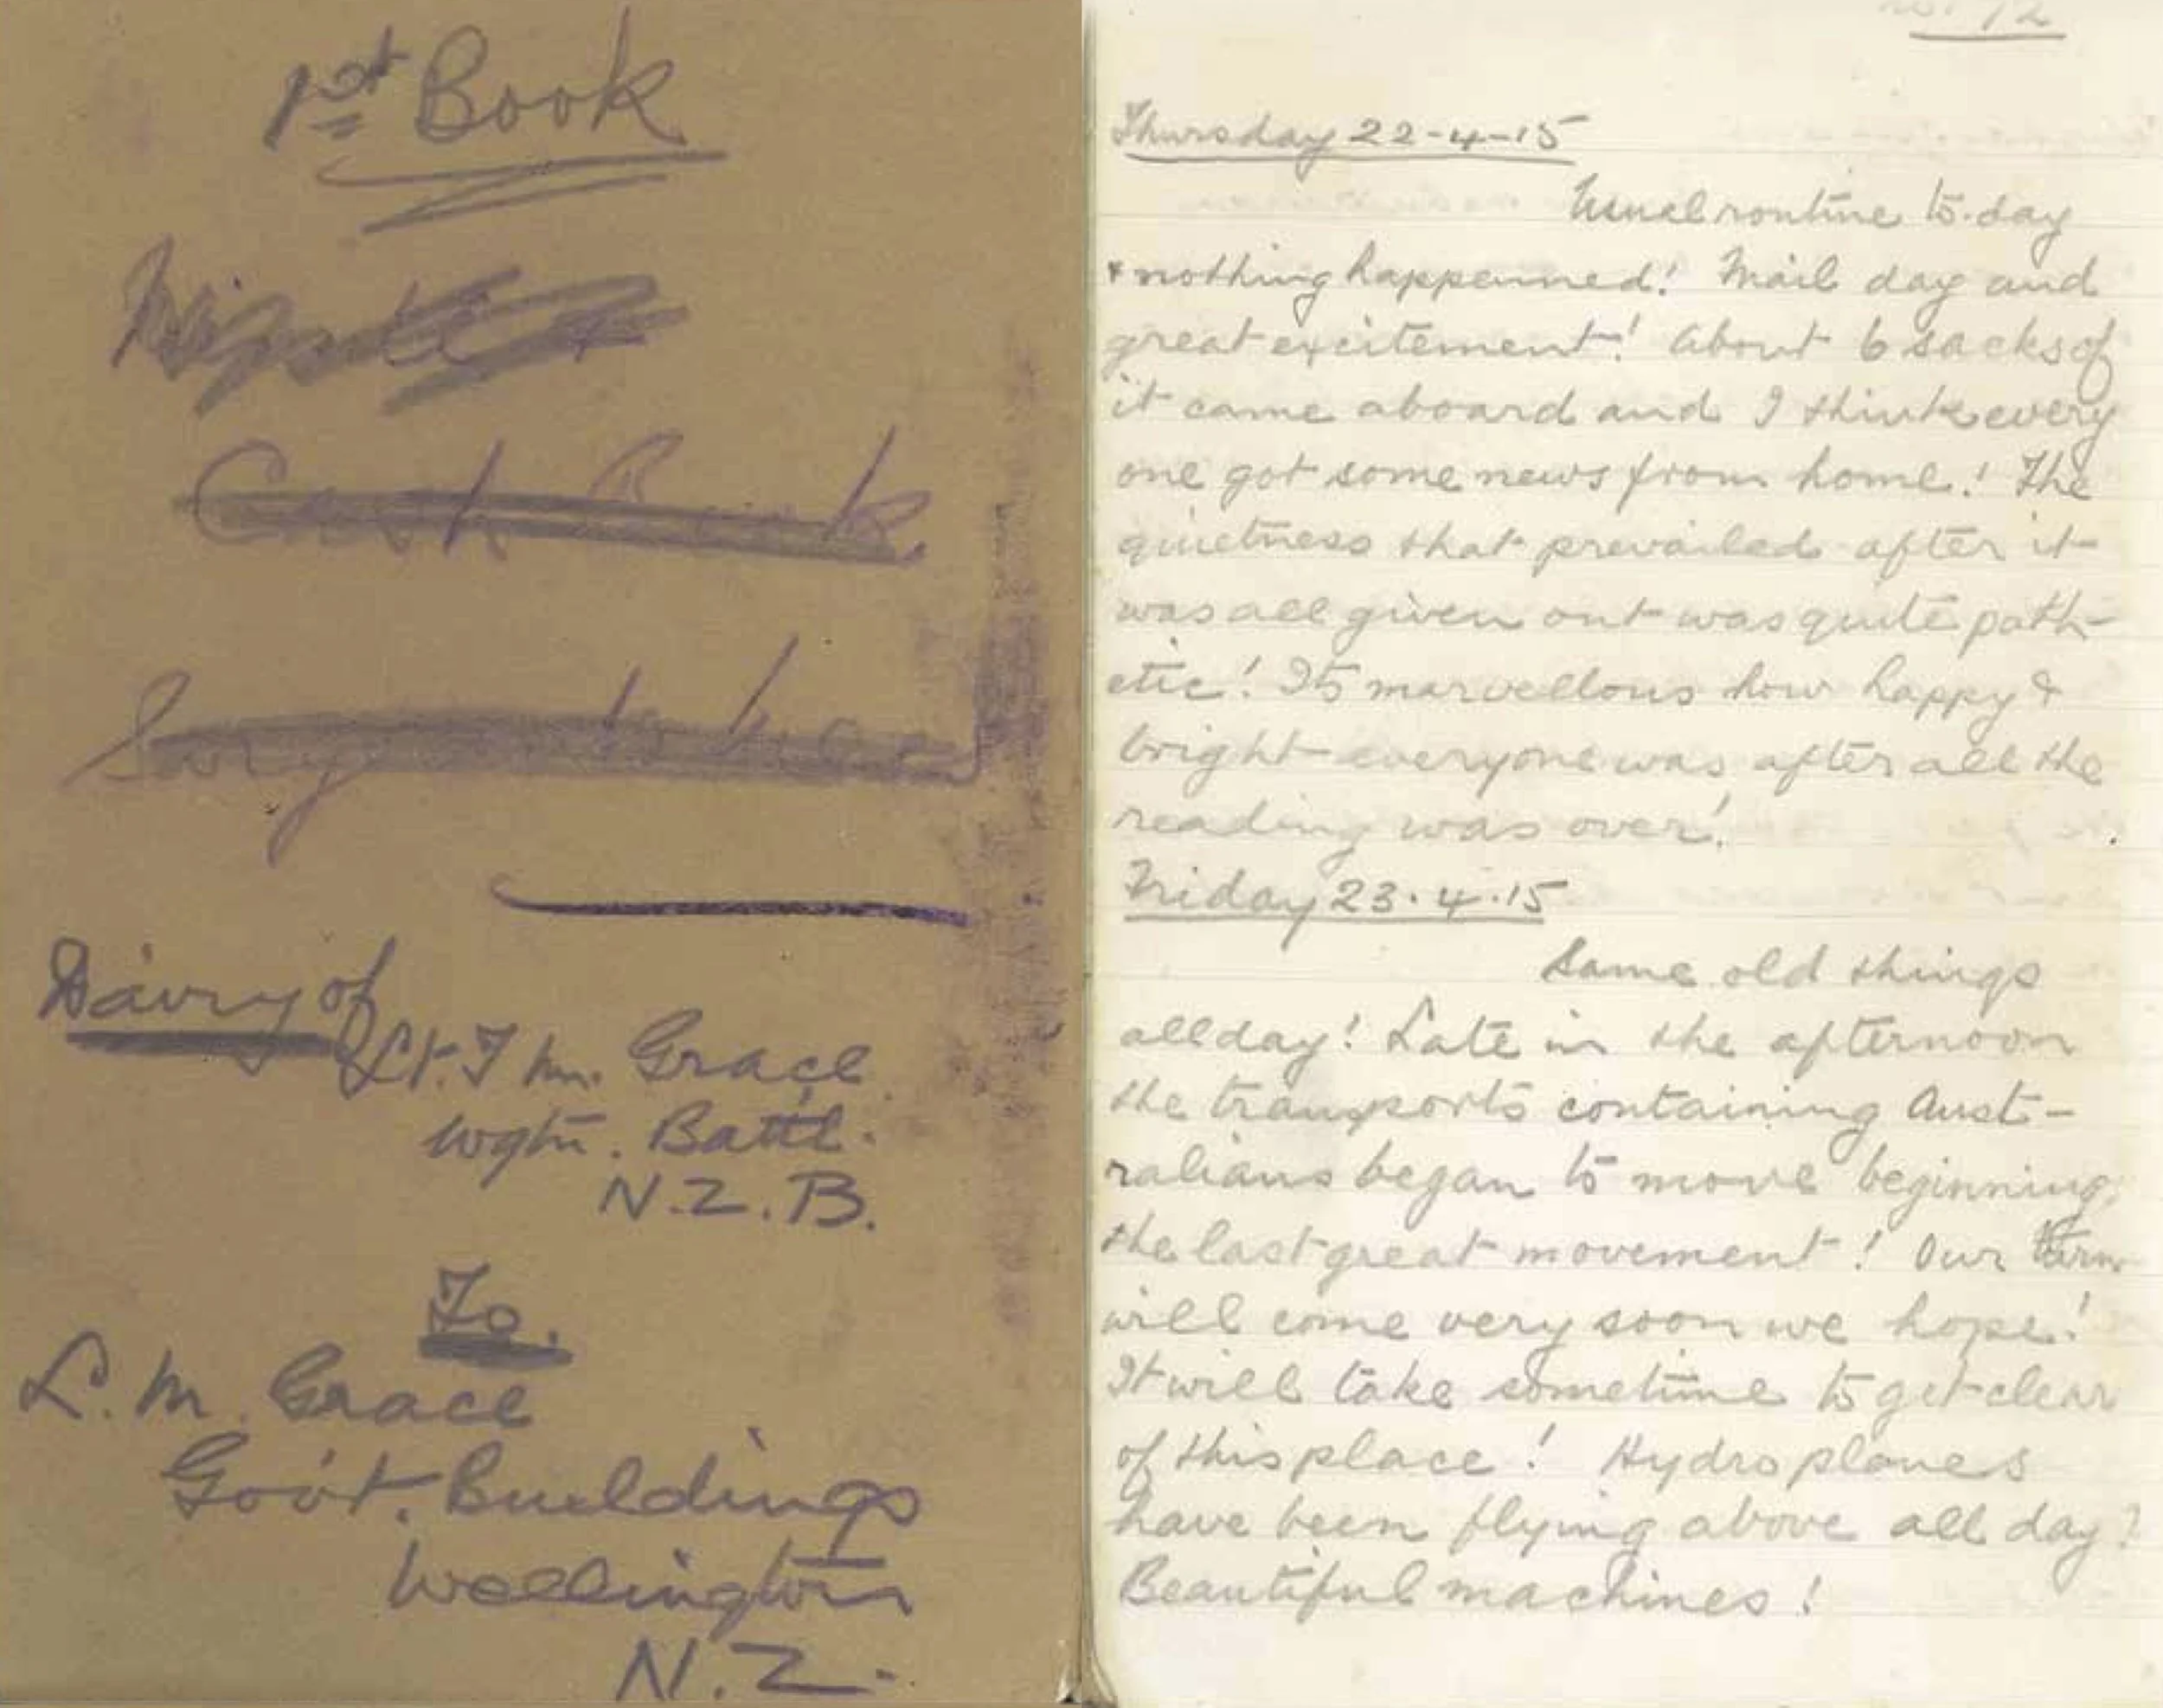 1st Book
Cash Book
Diary of
Lt. T. M. Grace
Wgtn. Battl.
N.Z.B.
To.
L. M. Grace
Gov't. Buildings
Wellington
N.Z.
Thursday 22-4-15
Usual routine to-day
& nothing happenned! Mail day and
great excitement! About 6 sacks of
it came aboard and I think every
one got some news from home! The
quietness that prevailed after it
was all given out was quite path-
etic! Its marvellous how happy &
bright everyone was after all the
reading was over!
Friday 23.4.15
Same old things
all day! Late in the afternoon
the transports containing Aust-
ralians began to move beginning
the last great movement! Our turn
will come very soon we hope!
It will take sometime to get clear
of this place! Hydroplanes
have been flying above all day!
Beautiful machines!